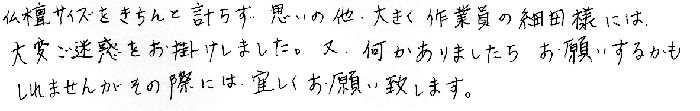 仏檀サイズをきちんと計らず思いの他、大きく作業員の細田様には、
大変ご迷惑をお掛けしました。又、何かありましたら お願いするかも
しれませんがその際には宜しくお願い致します。